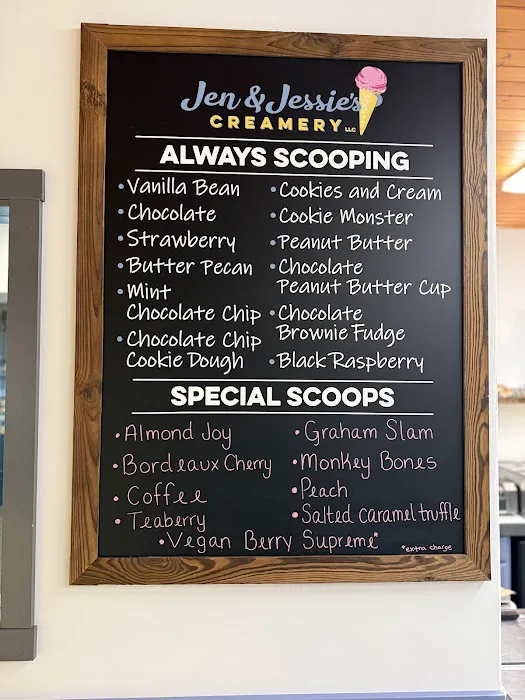 Jen & Jessie's
CREAMERY LLC
ALWAYS SCOOPING
• Vanilla Bean
• Chocolate
• Strawberry
• Butter Pecan
• Mint
Chocolate Chip
• Chocolate Chip
Cookie Dough
• Cookies and Cream
• Cookie Monster
• Peanut Butter
• Chocolate
Peanut Butter Cup
• Chocolate
Brownie Fudge
• Black Raspberry
SPECIAL SCOOPS
• Almond Joy
• Bordeaux Cherry
• Coffee
• Teaberry
• Graham Slam
• Monkey Bones
• Peach
• Salted caramel truffle
• Vegan Berry Supreme*
*extra charge